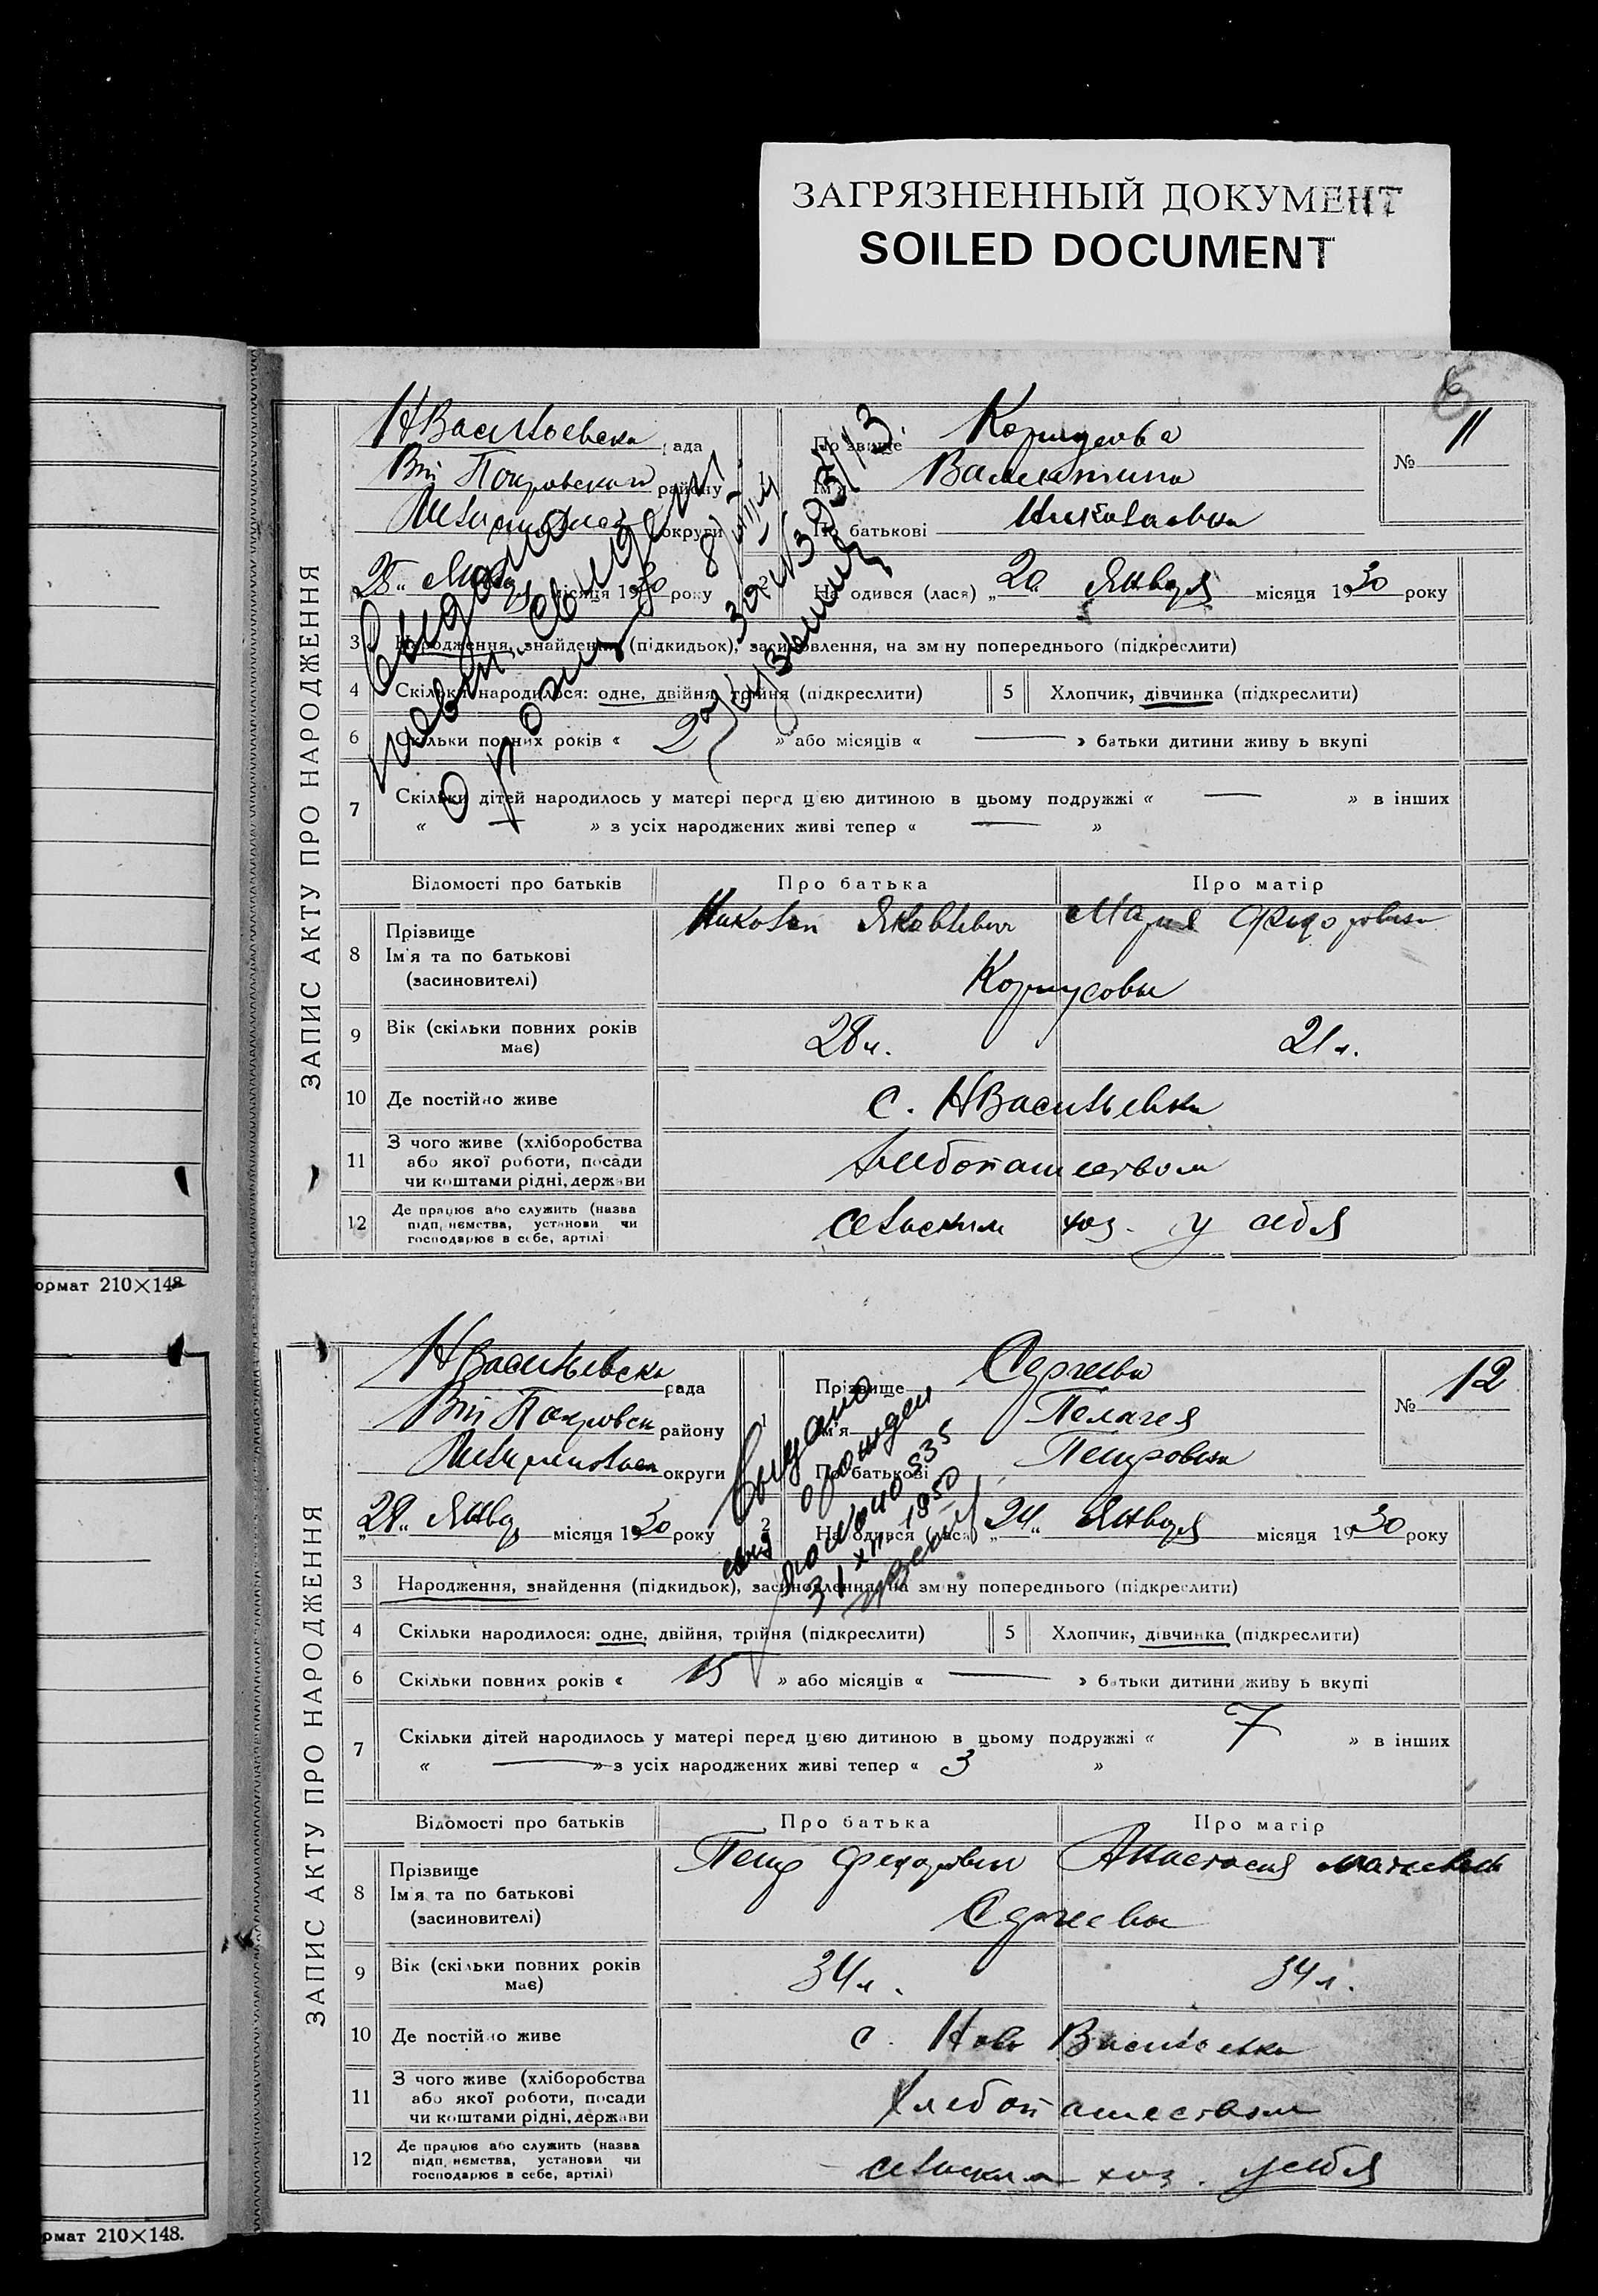 ЗАГРЯЗНЕННЫЙ ДОКУМЕНТ
SOILED DOCUMENT
6
ЗАПИС АКТУ ПРО НАРОДЖЕННЯ
НВасильевска рада
Вел Покровского району
округи
Прізвище
Ім'я Валентина
По батькові Николаевна
№ 11
„28“ Янв місяця 1930 року
2 Народився (лася) „20“ Января місяця 1930 року
3 Народження, знайдення (підкидьок), засиновлення, на зміну попереднього (підкреслити)
4 Скільки народилося: одне, двійня, трійня (підкреслити)
5 Хлопчик, дівчинка (підкреслити)
6 Скільки повних років « 2 » або місяців « — » батьки дитини живуть вкупі
7 Скільки дітей народилось у матері перед цією дитиною в цьому подружжі « — » в інших
« — » з усіх народжених живі тепер « — »
Відомості про батьків Про батька Про матір
8 Прізвище Ім'я та по батькові (засиновителі)
Николай Яковлевич Мария Федоровна
Корпусовы
9 Вік (скільки повних років має) 28 л. 21 л.
10 Де постійно живе с. НВасильевка
11 З чого живе (хліборобства або якої роботи, посади чи коштами рідні, держави хлебопашеством
12 Де працює або служить (назва підприємства, установи чи господарює в себе, артілі сельским хоз. у себя
Выдано
повтн. свидет.
о рожд
ормат 210×148
ЗАПИС АКТУ ПРО НАРОДЖЕННЯ
НВасильевска рада
Вел Покровск району
округи
Прізвище Сергеева
Ім'я Пелагея
По батькові Петровна
№ 12
„28“ Янвр місяця 1930 року
2 Народився (лася) „24“ Января місяця 1930 року
3 Народження, знайдення (підкидьок), засиновлення, на зміну попереднього (підкреслити)
4 Скільки народилося: одне, двійня, трійня (підкреслити)
5 Хлопчик, дівчинка (підкреслити)
6 Скільки повних років « 15 » або місяців « — » батьки дитини живуть вкупі
7 Скільки дітей народилось у матері перед цією дитиною в цьому подружжі « 7 » в інших
« — » з усіх народжених живі тепер « 3 »
Відомості про батьків Про батька Про матір
8 Прізвище Ім'я та по батькові (засиновителі)
Петр Федорович Анастасия
Сергеевы
9 Вік (скільки повних років має) 34 л. 34 л.
10 Де постійно живе с. Ново Васильевка
11 З чого живе (хліборобства або якої роботи, посади чи коштами рідні, держави хлебопашеством
12 Де працює або служить (назва підприємства, установи чи господарює в себе, артілі) сельским хоз. у себя
Выдано
свид о рожден
31 XII 1950
рмат 210×148.